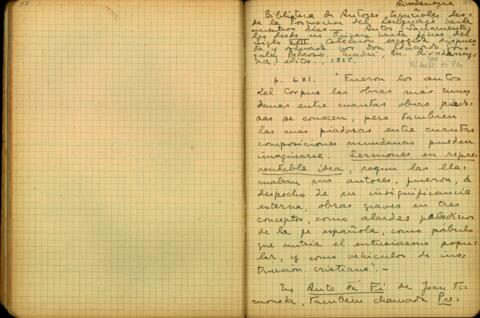 Rivadeneyra
Biblioteca de Autores Españoles des-
de la formacion del Lenguaje hasta
nuestros dias — Autos Sacramenta-
les desde su origen hasta fines del
siglo XVII. Coleccion escogida, dispues-
ta y ordenada por Don Eduardo Gon-
zalez Pedroso. Madrid, M. Rivadeney-
ra, editor, 1865.
p. LXI. "Fueron los autos
del Corpus las obras más mun-
danas entre cuantas obras piado-
sas se conocen, pero tambien
las más piadosas entre cuantas
composiciones mundanas pueden
imaginarse. Sermones en repre-
sentable idea, segun las lla-
maban sus autores, fueron, á
despecho de su insignificancia
externa, obras graves en tres
conceptos, como alardes
de la fe española, como pábulo
que nutria el entusiasmo popu-
lar, y como vehículos de ins-
truccion cristiana". —
Auto da Fé de Joan Ti-
moneda, tambien chamado Pre-